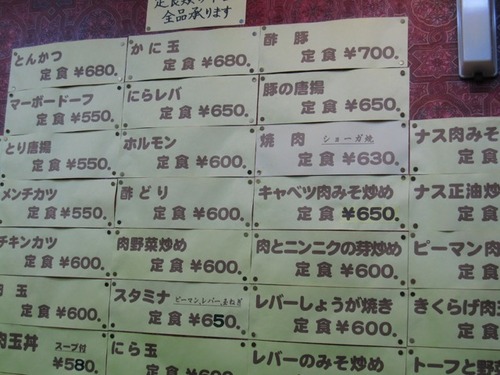 全品承ります
とんかつ
定食 ¥680.
マーボードーフ
定食 ¥550.
とり唐揚
定食 ¥550.
メンチカツ
定食 ¥550.
チキンカツ
定食 ¥600.
玉
定食 ¥600.
肉玉丼 スープ付
¥580.
かに玉
定食 ¥680.
にらレバ
定食 ¥650.
ホルモン
定食 ¥600.
酢どり
定食 ¥600.
肉野菜炒め
定食 ¥600.
スタミナ ピーマン、レバー、玉ねぎ
定食 ¥650.
にら玉
定食 ¥600.
酢豚
定食 ¥700.
豚の唐揚
定食 ¥650.
焼肉 ショーガ焼
定食 ¥630.
キャベツ肉みそ炒め
定食 ¥650.
肉とニンニクの芽炒め
定食 ¥600.
レバーしょうが焼き
定食 ¥600.
レバーのみそ炒め
定食 ¥600.
ナス肉みそ
定食
ナス正油炒
定食
ピーマン肉
定食
きくらげ肉
定食
トーフと野